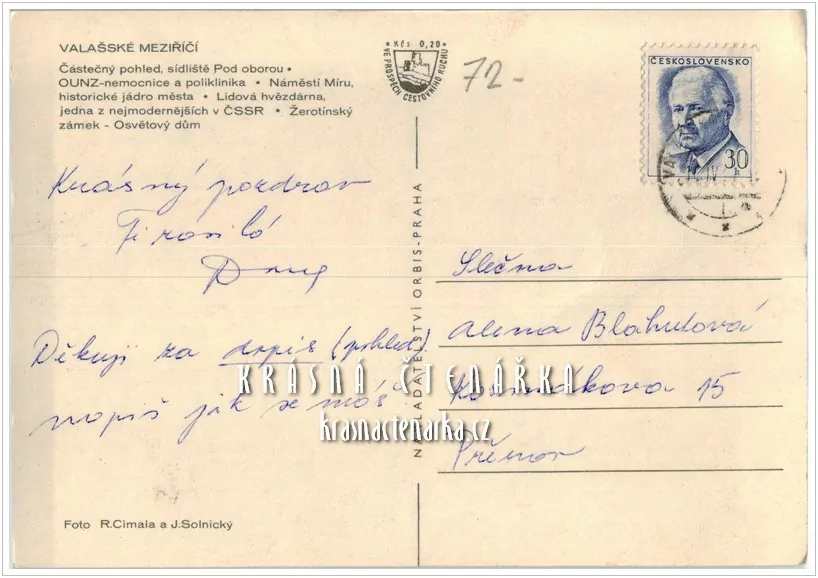 VALAŠSKÉ MEZIŘÍČÍ
Částečný pohled, sídliště Pod oborou •
OUNZ-nemocnice a poliklinika • Náměstí Míru,
historické jádro města • Lidová hvězdárna,
jedna z nejmodernějších v ČSSR • Žerotínský
zámek - Osvětový dům
* Kčs 0,20 *
VE PROSPĚCH CESTOVNÍHO RUCHU
72-
ČESKOSLOVENSKO
30
Krásný pozdrav
Ti
Děkuji za dopis (pohled)
napiš jak se máš
NAKLADATELSTVÍ ORBIS-PRAHA
Slečna
Alena Blahutová
15
Přerov
KRÁSNÁ ČTENÁŘKA
krasnactenarka.cz
Foto R.Cimala a J.Solnický